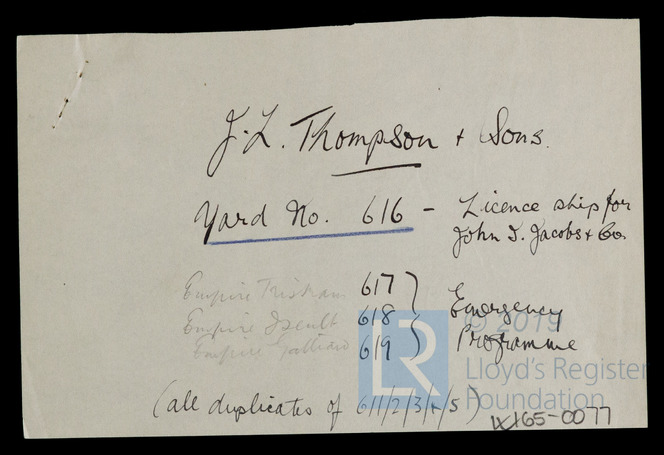 J.L. Thompson + Sons.
Yard No. 616 - Licence ship for
John I. Jacobs + Co.
Empire Tristram 617
Empire Iseult 618
Empire Galliard 619
Emergency
Programme
(all duplicates of 611/2/3/4/5)
LR
© 2019
Lloyd's Register
Foundation
W165-0077